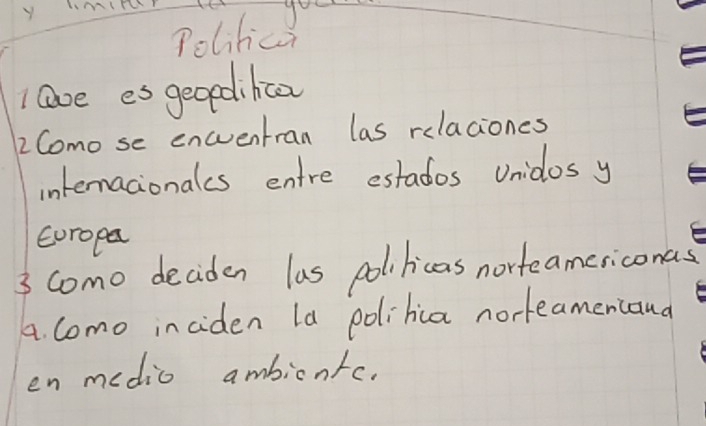 y limitar la
Politica
1 Que es geopolitica
2 Como se encuentran las relaciones
internacionales entre estados unidos y
Europa
3 Como deciden las politicas norteamericanas
4. Como inciden la politica norteamericana
en medio ambiente.